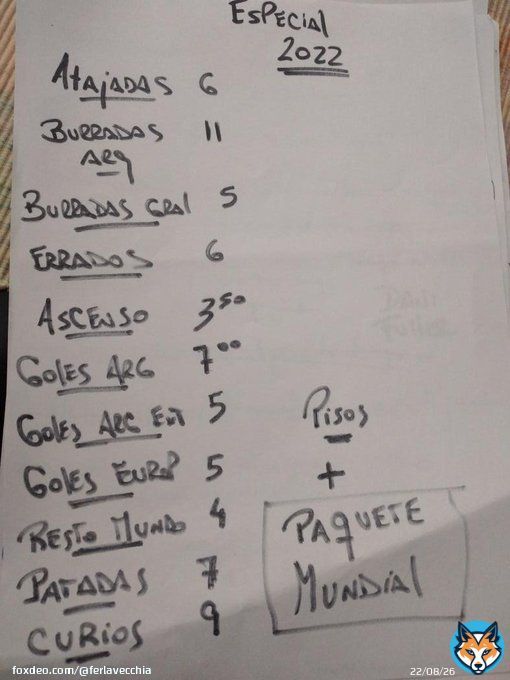 ESPECIAL
2022
ATAJADAS 6
BURRADAS 11
ARG
BURRADAS GRAL 5
ERRADOS 6
ASCENSO 3⁵⁰
GOLES ARG 7⁰⁰
GOLES ARG EXT 5
GOLES EUROP 5
RESTO MUNDO 4
PATADAS 7
CURIOS 9
PISOS
+
PAQUETE
MUNDIAL
foxdeo.com/@ferlavecchia
22/08/26